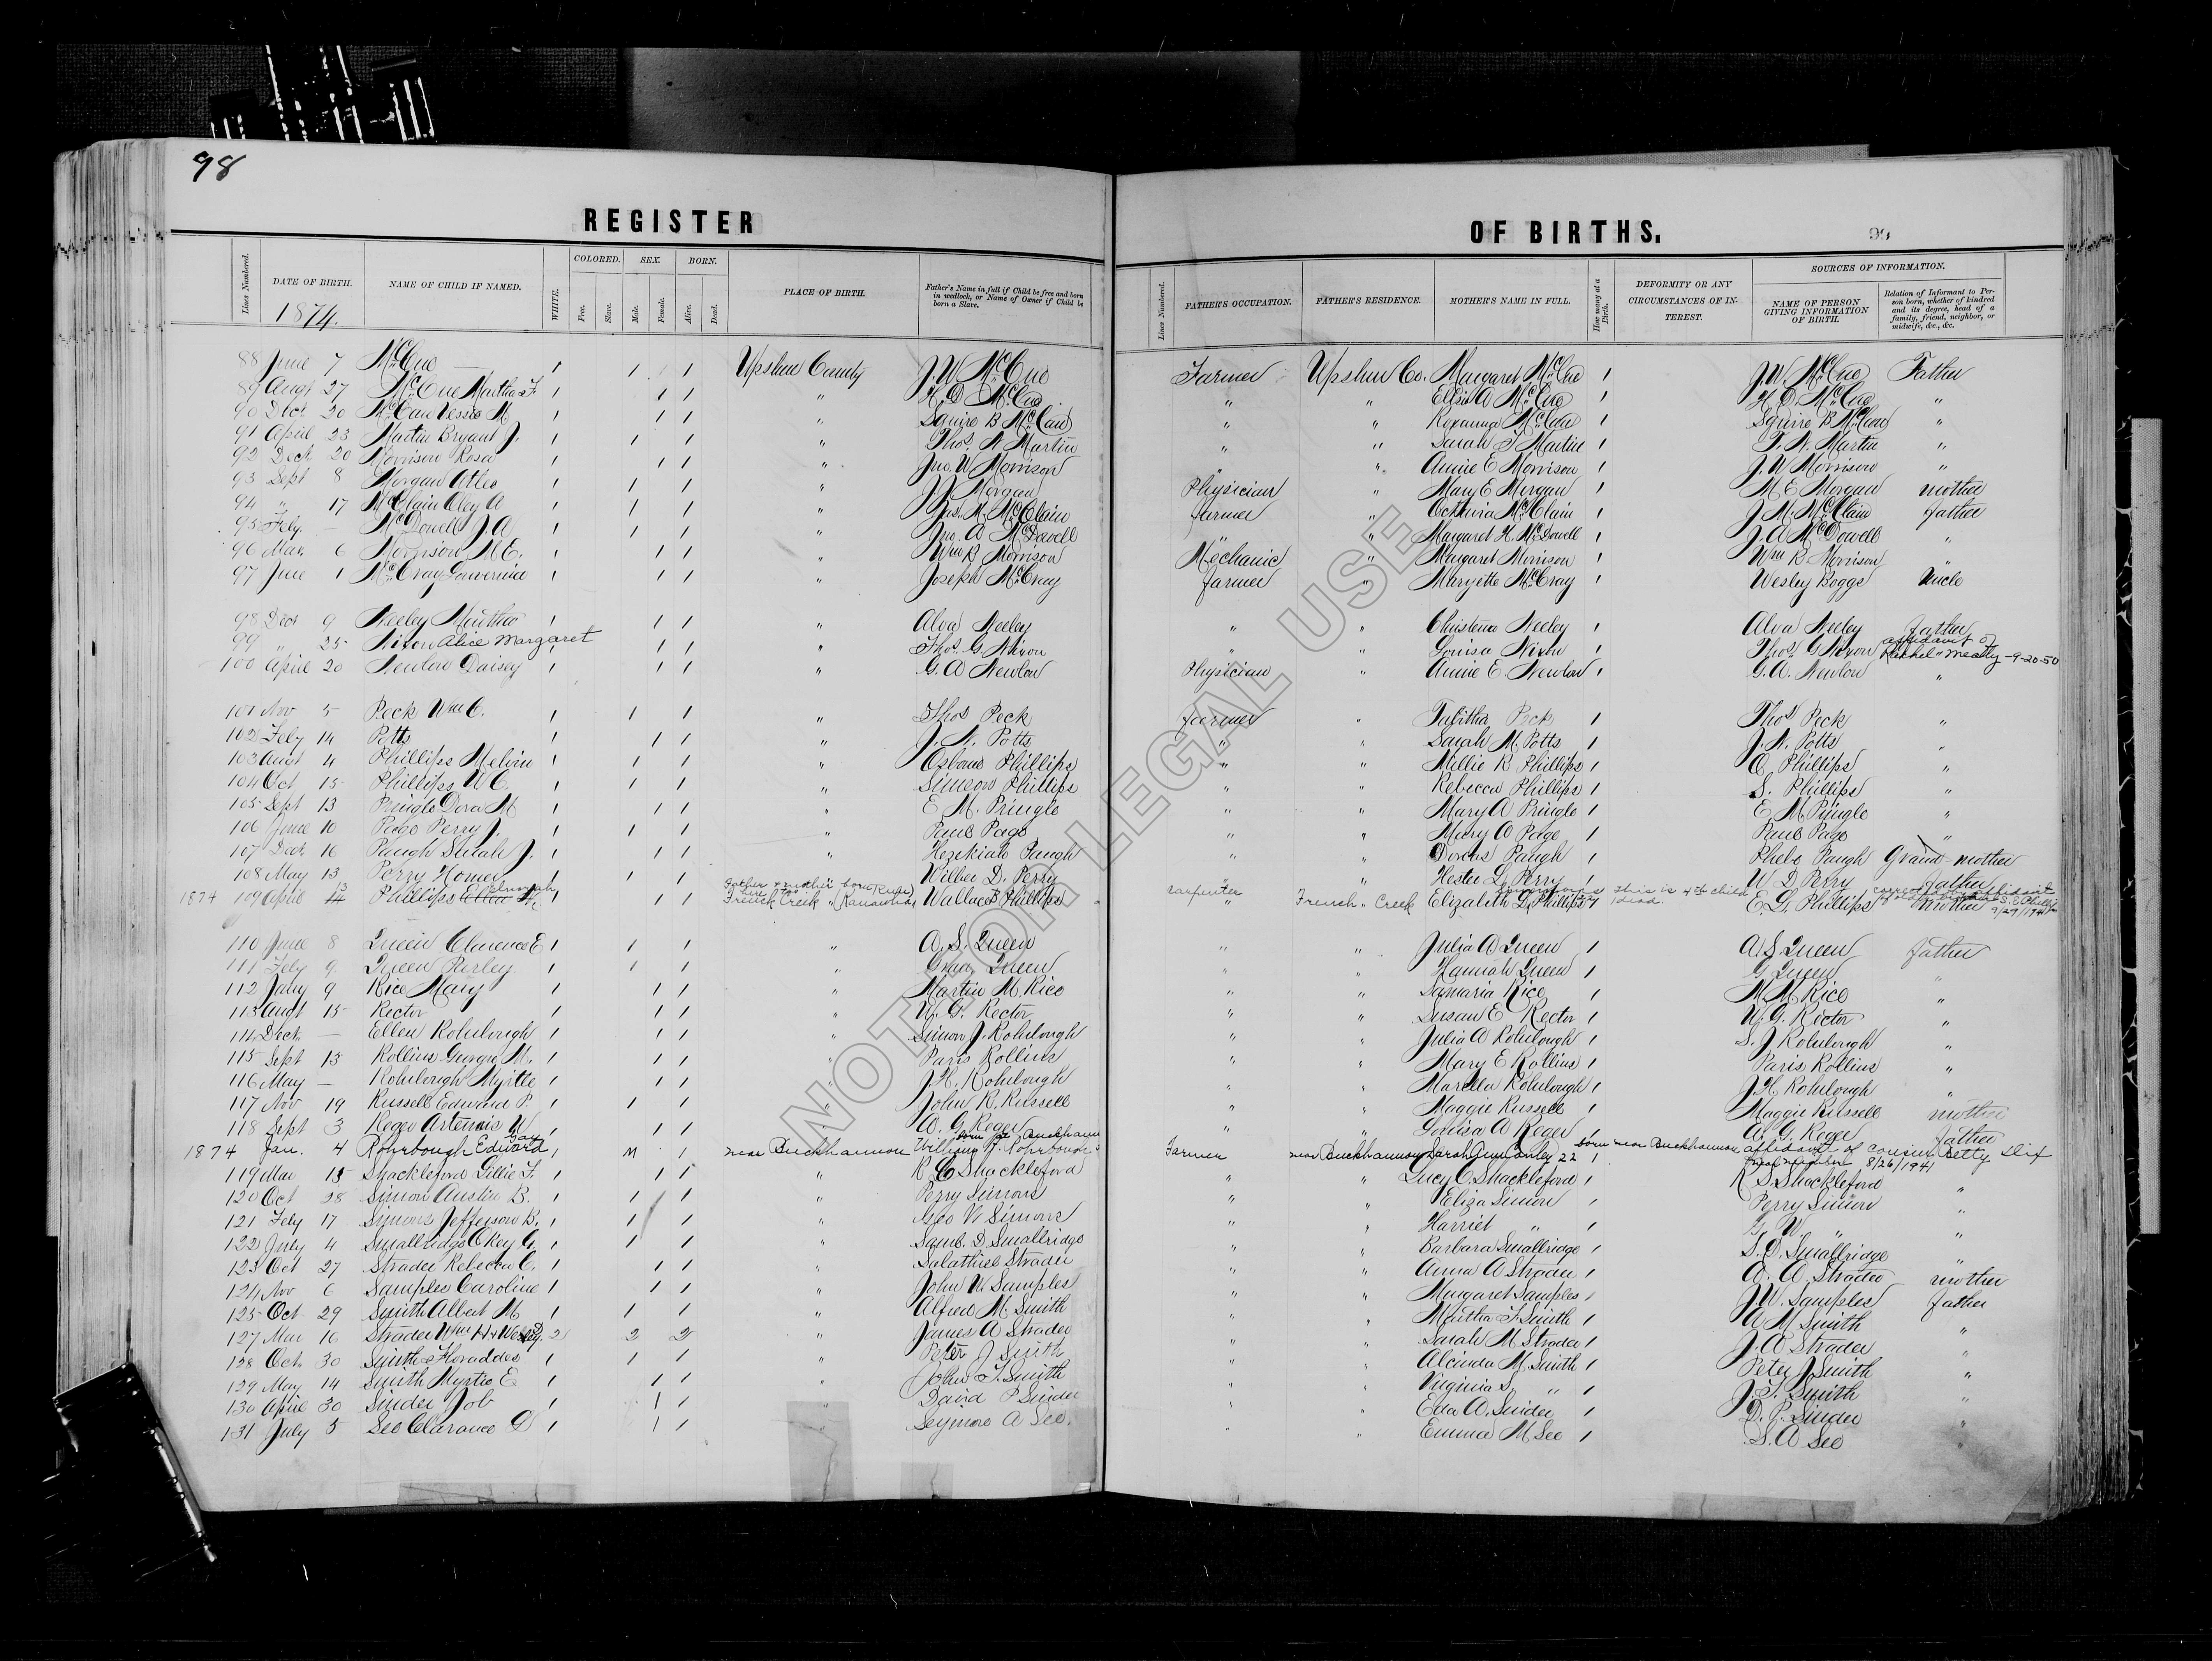 98
REGISTER
OF BIRTHS.
99
Lines Numbered.
DATE OF BIRTH.
1874.
NAME OF CHILD IF NAMED.
WHITE.
COLORED.
Free.
Slave.
SEX.
Male.
Female.
BORN.
Alive.
Dead.
PLACE OF BIRTH.
Father's Name in full if Child be free and born in wedlock, or Name of Owner if Child be born a Slave.
Lines Numbered.
FATHER'S OCCUPATION.
FATHER'S RESIDENCE.
MOTHER'S NAME IN FULL.
How many at a Birth.
DEFORMITY OR ANY CIRCUMSTANCES OF INTEREST.
SOURCES OF INFORMATION.
NAME OF PERSON GIVING INFORMATION OF BIRTH.
Relation of Informant to Person born, whether of kindred and its degree, head of a family, friend, neighbor, or midwife, &c., &c.
88 June 7 McCue — 1 1 1 Upshur County J. W. McCue Farmer Upshur Co. Margaret McCue 1 J. W. McCue Father
89 Augt 27 McCue Martha F. 1 1 1 " H. D. McCue " " McCue 1 H. D. McCue "
90 Dec 20 McCau M 1 1 1 " Squire B McCau " " Roxanna McCau 1 Squire B McCau "
91 April 23 Martin Bryant J. 1 1 1 " Thos. N. Martin " " Sarah F Martin 1 T. N. Martin "
92 Dec 20 Morrison Rosa 1 1 1 " Jno. W Morrison " " Annie E Morrison 1 J. W Morrison "
93 Sept 8 Morgan 1 1 1 " Morgan Physician " Mary E Morgan 1 M E Morgan mother
94 " 17 McClain Aley A 1 1 1 " Jas. M. McClain farmer " McClain 1 J. M. McClain father
95 Feby. — McDowell J. A 1 1 1 " Jno. A McDowell " " Margaret H. McDowell 1 J. A McDowell "
96 Mar 6 Morrison M E. 1 1 1 " Wm R Morrison Mechanic " Margaret Morrison 1 Wm R Morrison "
97 June 1 McCray 1 1 1 " Joseph McCray farmer " Maryette McCray 1 Wesley Boggs Uncle
98 Dec 9 Neeley 1 1 1 " Alva Neeley " " Christena Neeley 1 Alva Neeley Father
99 " 25 Nixon Alice Margaret 1 1 1 " Thos. G Nixon " " Louisa Nixon 1 Thos. G Nixon affidavit of Rachel Meatty - 9-20-50
100 April 20 Newlon Daisy 1 1 1 " G. A Newlon Physician " Annie E. Newlon 1 G. A. Newlon "
101 Nov 5 Peck Wm C. 1 1 1 " Thos Peck farmer " Tabitha Peck 1 Thos Peck "
102 Feby 14 Potts 1 1 1 " J. N. Potts " " Sarah M. Potts 1 J. N. Potts "
103 Augt 4 Phillips Melvin 1 1 1 " Phillips " " Millie R Phillips 1 O Phillips "
104 Oct 15 Phillips W C. 1 1 1 " Simeon Phillips " " Rebecca Phillips 1 S. Phillips "
105 Sept 13 Pringle Dora M 1 1 1 " E M. Pringle " " Mary A Pringle 1 E M Pringle "
106 June 10 Page Perry J. 1 1 1 " Paul Page " " Mary A Page 1 Paul Page "
107 Dec 16 Paugh Sarah J. 1 1 1 " Hezekiah Paugh " " Dorcas Paugh 1 Phebe Paugh Grand mother
108 May 13 Perry Homer 1 1 1 " Wilber D. Perry " " Hester L. Perry 1 W D Perry father
1874 109 April 13 Phillips 1 1 1 French Creek Wallace Phillips carpenter French Creek Elizabeth G. Phillips 1 this is 4th child E. G. Phillips mother 9/29/1941
110 June 8 Queen Clarence E 1 1 1 " A. S. Queen " " Julia A Queen 1 A S Queen father
111 Feby 9 Queen Perley 1 1 1 " Queen " " Hannah Queen 1 G Queen "
112 Jany 9 Rice Mary 1 1 1 " Martin M. Rice " " Samaria Rice 1 M M Rice "
113 Augt 15 Rector 1 1 1 " W. G. Rector " " Susan E Rector 1 W. G. Rector "
114 Dec — Ellen Rohrbough 1 1 1 " Simon J. Rohrbough " " Julia A Rohrbough 1 S. J Rohrbough "
115 Sept 13 Rollins M. 1 1 1 " Paris Rollins " " Mary E Rollins 1 Paris Rollins "
116 May — Rohrbough Myrtle 1 1 1 " J. H. Rohrbough " " Marella Rohrbough 1 J. H Rohrbough "
117 Nov 19 Russell Edward P. 1 1 1 " John R. Russell " " Maggie Russell 1 Maggie Russell mother
118 Sept 3 Reger Artemis W 1 1 1 " A. G. Reger " " Louisa A Reger 1 A. G. Reger father
1874 Jan. 4 Rohrbough Edward Gay 1 M 1 near Buckhannon Rohrbough Farmer near Buckhannon 22 1 born near Buckhannon affidavit of cousin Betty Hix 8/26/1941
119 Mar 15 Shackleford Lillie F. 1 1 1 " R S Shackleford " " Lucy C. Shackleford 1 R S Shackleford "
120 Oct 28 Simon Austin B. 1 1 1 " Perry Simon " " Eliza Simon 1 Perry Simon "
121 Feby 17 Simons Jefferson B. 1 1 1 " Geo W Simons " " Harriet " 1 G. W. " "
122 July 4 Smallridge Okey G. 1 1 1 " Saml. D Smallridge " " Barbara Smallridge 1 S. D. Smallridge "
123 Oct 27 Strader Rebecca C. 1 1 1 " Salathiel Strader " " Anna A Strader 1 A. A. Strader mother
124 Nov 6 Samples Caroline 1 1 1 " John W. Samples " " Margaret Samples 1 J. W. Samples father
125 Oct 29 Smith Albert M 1 1 1 " Alfred M. Smith " " Martha F Smith 1 A M Smith "
127 Mar 16 Strader Wm H & 2 2 2 " James A Strader " " Sarah M Strader 1 J. A Strader "
128 Oct 30 Smith 1 1 1 " Peter J Smith " " Alcinda M. Smith 1 Peter J Smith "
129 May 14 Smith Myrtie E 1 1 1 " John T. Smith " " Virginia S. " 1 J. T. Smith "
130 April 30 Sinder Job 1 1 1 " David P Sinder " " Eda A. Sinder 1 D. P. Sinder "
131 July 5 See Clarance D 1 1 1 " Seymore A See. " " Emma M See 1 S. A See
NOT FOR LEGAL USE